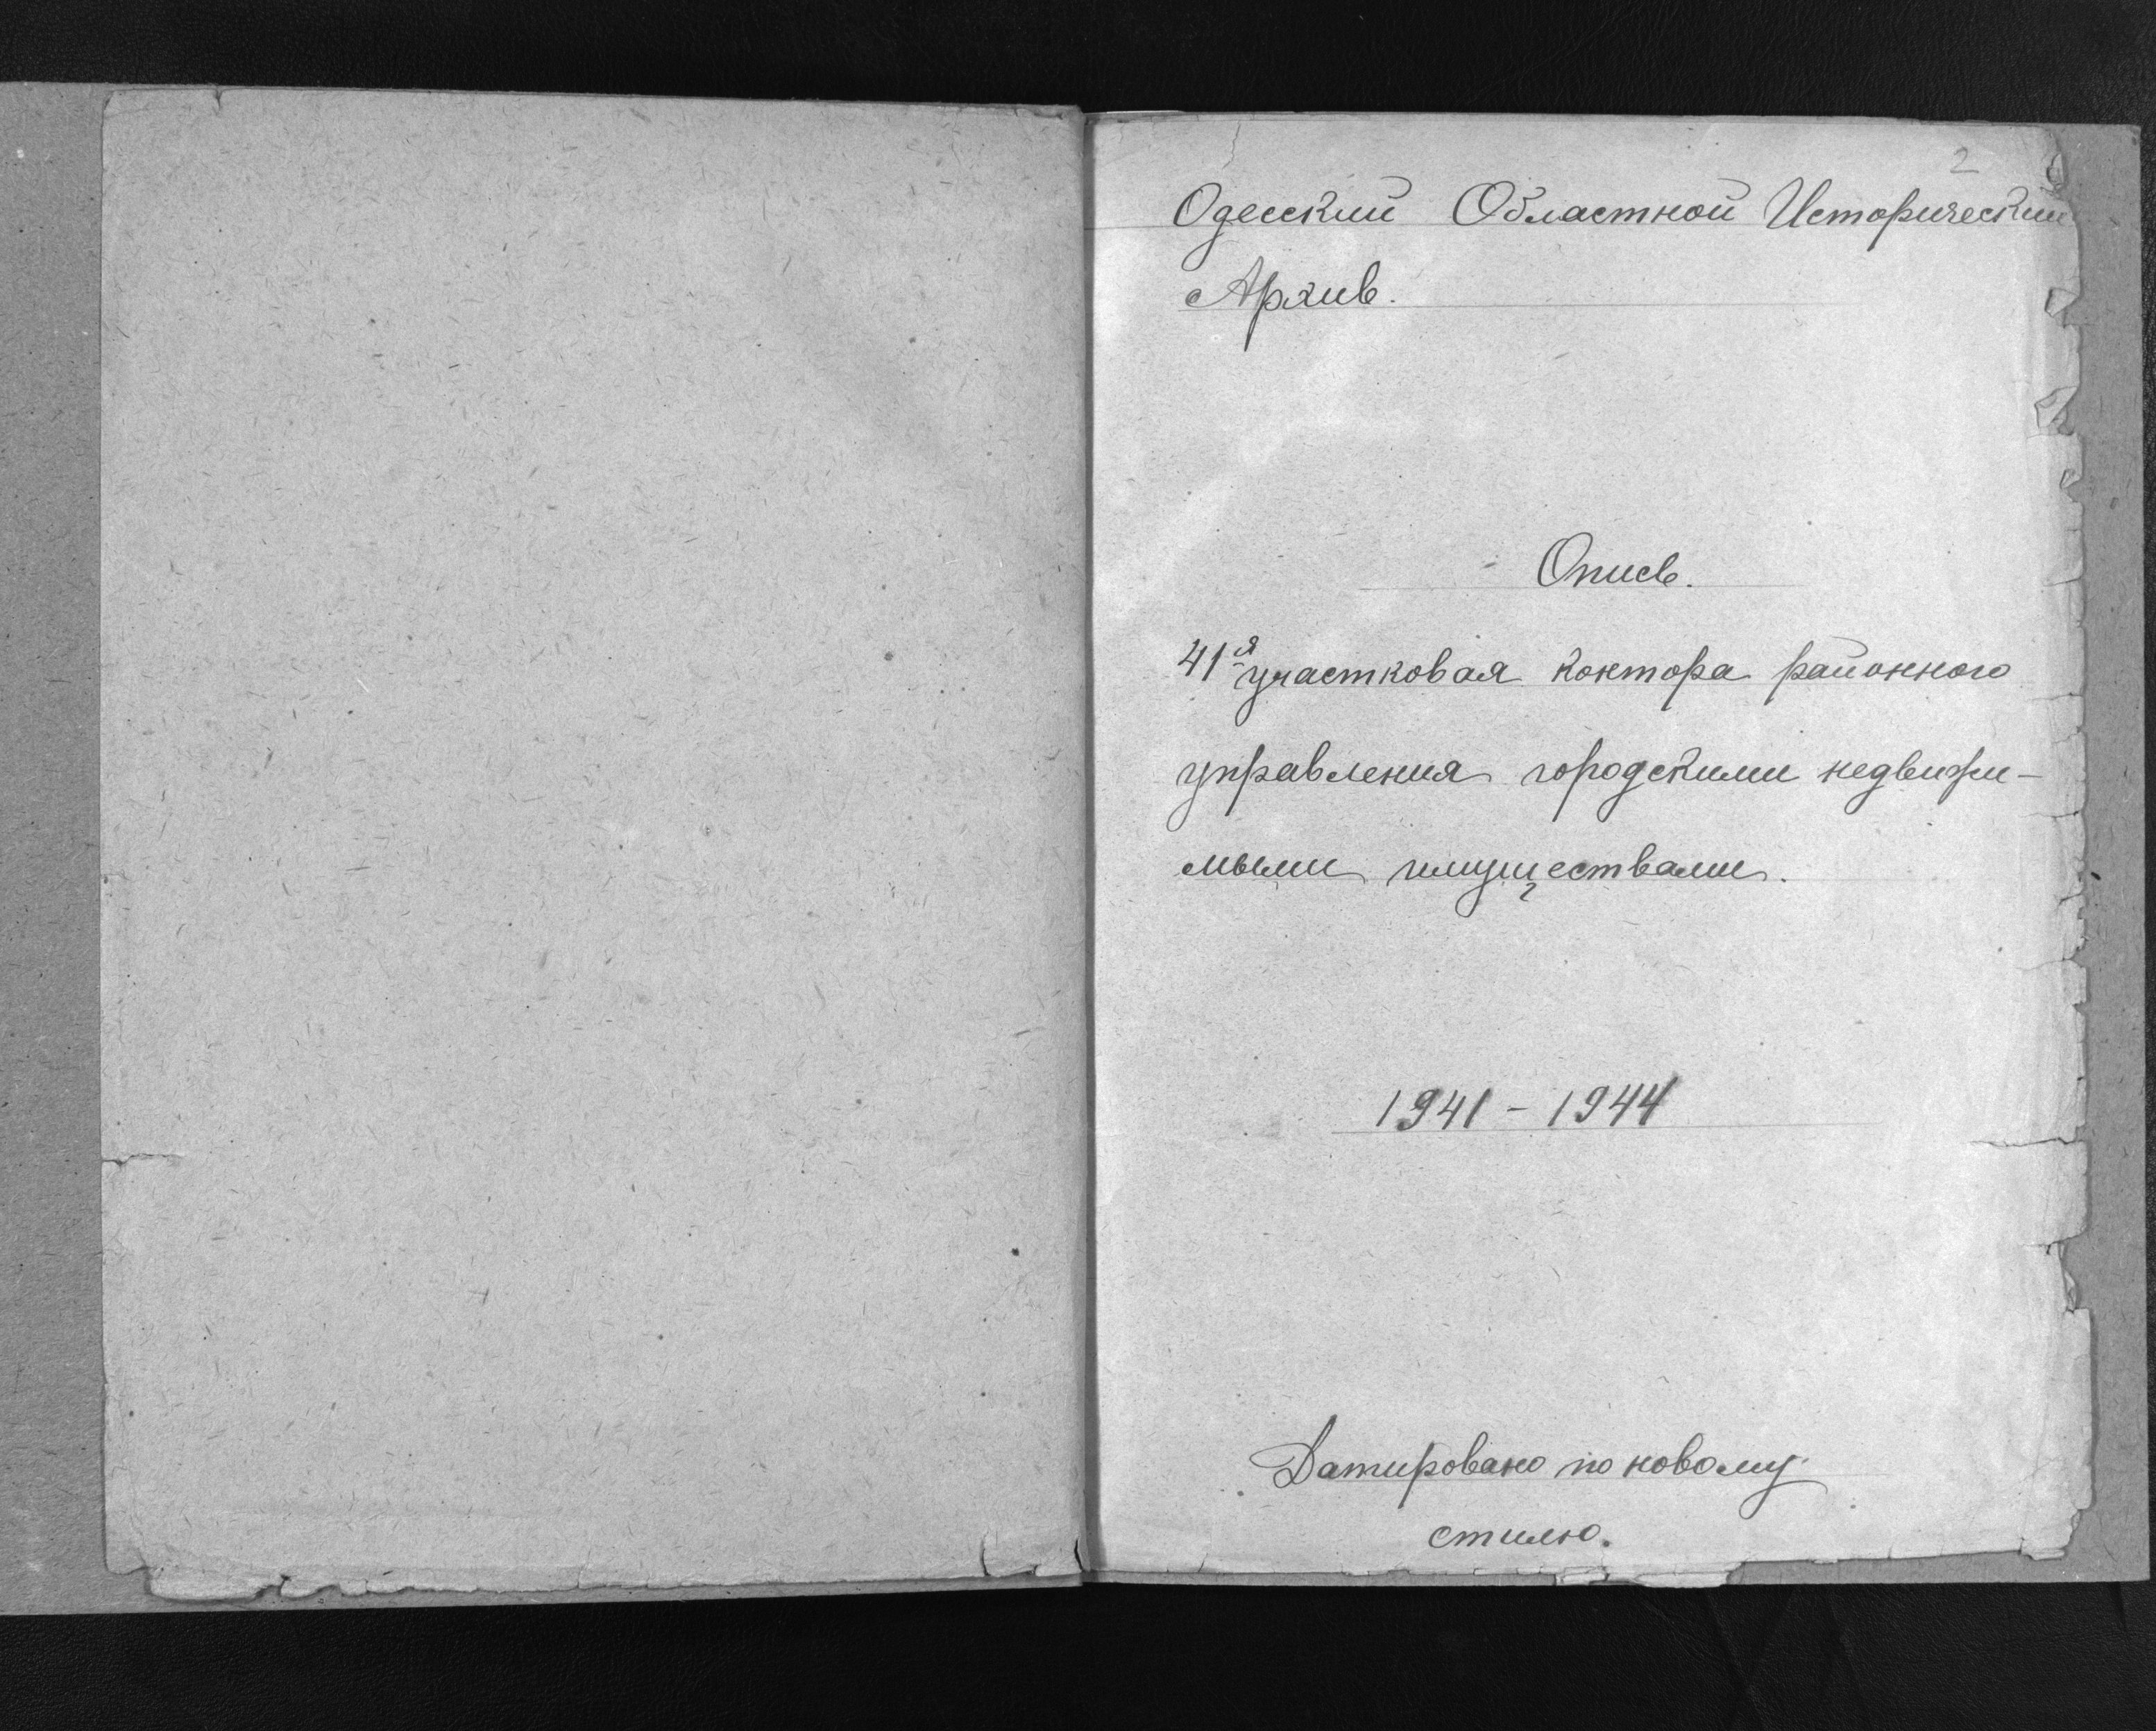 2
Одесский Областной Исторический
Архив.
Опись.
41я участковая контора районного
управления городскими недвижи-
мыми имуществами.
1941 - 1944
Датировано по новому
стилю.